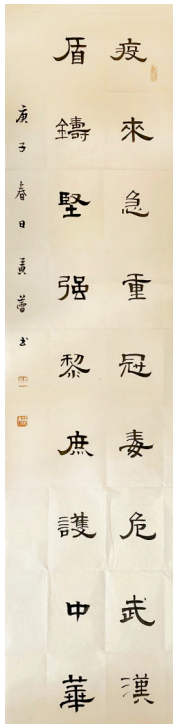 疫來急重冠毒危武漢
盾鑄堅强黎庶護中華
庚子春日黃蕾書